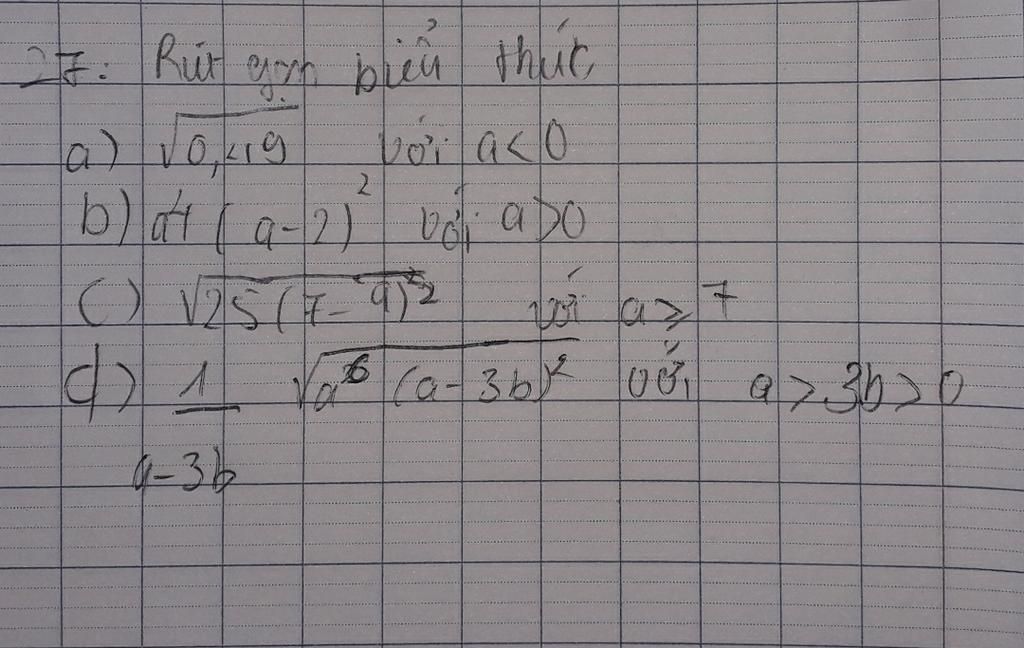 27: Rút gọn biểu thức
a) √0,49 với a<0
b) a⁴ (a-2)² với a>0
c) √25(7-a)² với a≥7
d) 1 √a⁶ (a-3b)² với a>3b>0
a-3b